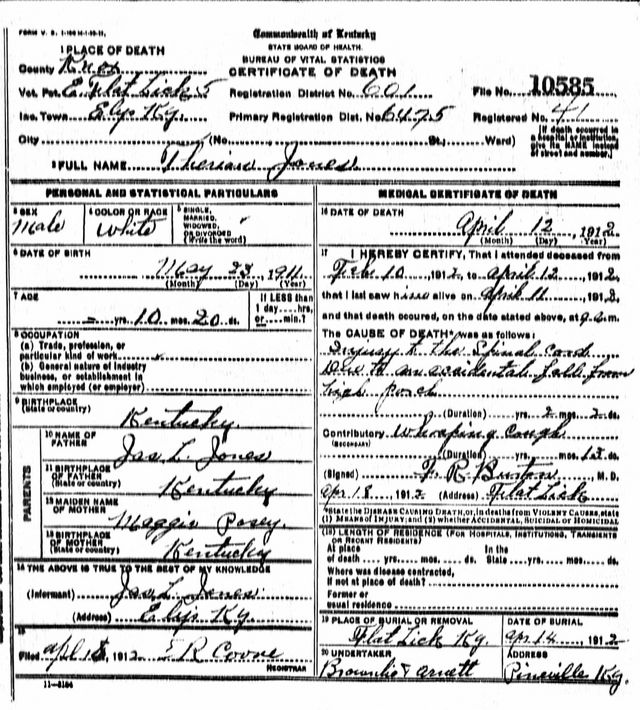 FORM V. S. 1-100 M-1-20-11.
Commonwealth of Kentucky
STATE BOARD OF HEALTH.
BUREAU OF VITAL STATISTICS
CERTIFICATE OF DEATH
1 PLACE OF DEATH
County Knox
Vot. Pct. E. Flat Lick 5
Registration District No. 601
File No. 10585
Inc. Town Elys Ky.
Primary Registration Dist. No. 6475
Registered No. 41
City (No. St., Ward)
[If death occurred in a hospital or institution, give its NAME instead of street and number.]
2 FULL NAME Jones
PERSONAL AND STATISTICAL PARTICULARS
3 SEX
Male
4 COLOR OR RACE
White
5 SINGLE, MARRIED, WIDOWED, OR DIVORCED (Write the word)
6 DATE OF BIRTH
May 23, 1911
(Month) (Day) (Year)
7 AGE
– yrs. 10 mos. 20 ds.
If LESS than 1 day....hrs, or....min.?
8 OCCUPATION
(a) Trade, profession, or particular kind of work
(b) General nature of industry business, or establishment in which employed (or employer)
9 BIRTHPLACE
(State or country) Kentucky
PARENTS
10 NAME OF FATHER Jas L. Jones
11 BIRTHPLACE OF FATHER (State or country) Kentucky
12 MAIDEN NAME OF MOTHER Maggie Posey
13 BIRTHPLACE OF MOTHER (State or country) Kentucky
14 THE ABOVE IS TRUE TO THE BEST OF MY KNOWLEDGE
(Informant) Jas L. Jones
(Address) Elys Ky
15
Filed Apl 18, 1912 R Coone
REGISTRAR
11-3184
MEDICAL CERTIFICATE OF DEATH
16 DATE OF DEATH
April 12, 1912
(Month) (Day) (Year)
17 I HEREBY CERTIFY, That I attended deceased from
Feb 10, 1912, to April 12, 1912,
that I last saw him alive on April 11, 1912,
and that death occured, on the date stated above, at 9 a.m.
The CAUSE OF DEATH* was as follows:
Injury to the Spinal Cord
Due to an accidental fall from
high porch
(Duration) yrs. 2 mos. 2 ds.
Contributory Whooping Cough
(SECONDARY)
(Duration) yrs. mos. ds.
(Signed) R M. D.
Apr 18, 1912 (Address) Flat Lick
*State the DISEASE CAUSING DEATH, or, in deaths from VIOLENT CAUSES, state (1) MEANS OF INJURY; and (2) whether ACCIDENTAL, SUICIDAL or HOMICIDAL
18 LENGTH OF RESIDENCE (FOR HOSPITALS, INSTITUTIONS, TRANSIENTS OR RECENT RESIDENTS)
At place of death yrs. mos. ds. In the State yrs. mos. ds.
Where was disease contracted, if not at place of death?
Former or usual residence
19 PLACE OF BURIAL OR REMOVAL
Flat Lick Ky
DATE OF BURIAL
Apr 14, 1912
20 UNDERTAKER
Brownlie & Arnett
ADDRESS
Pineville Ky.